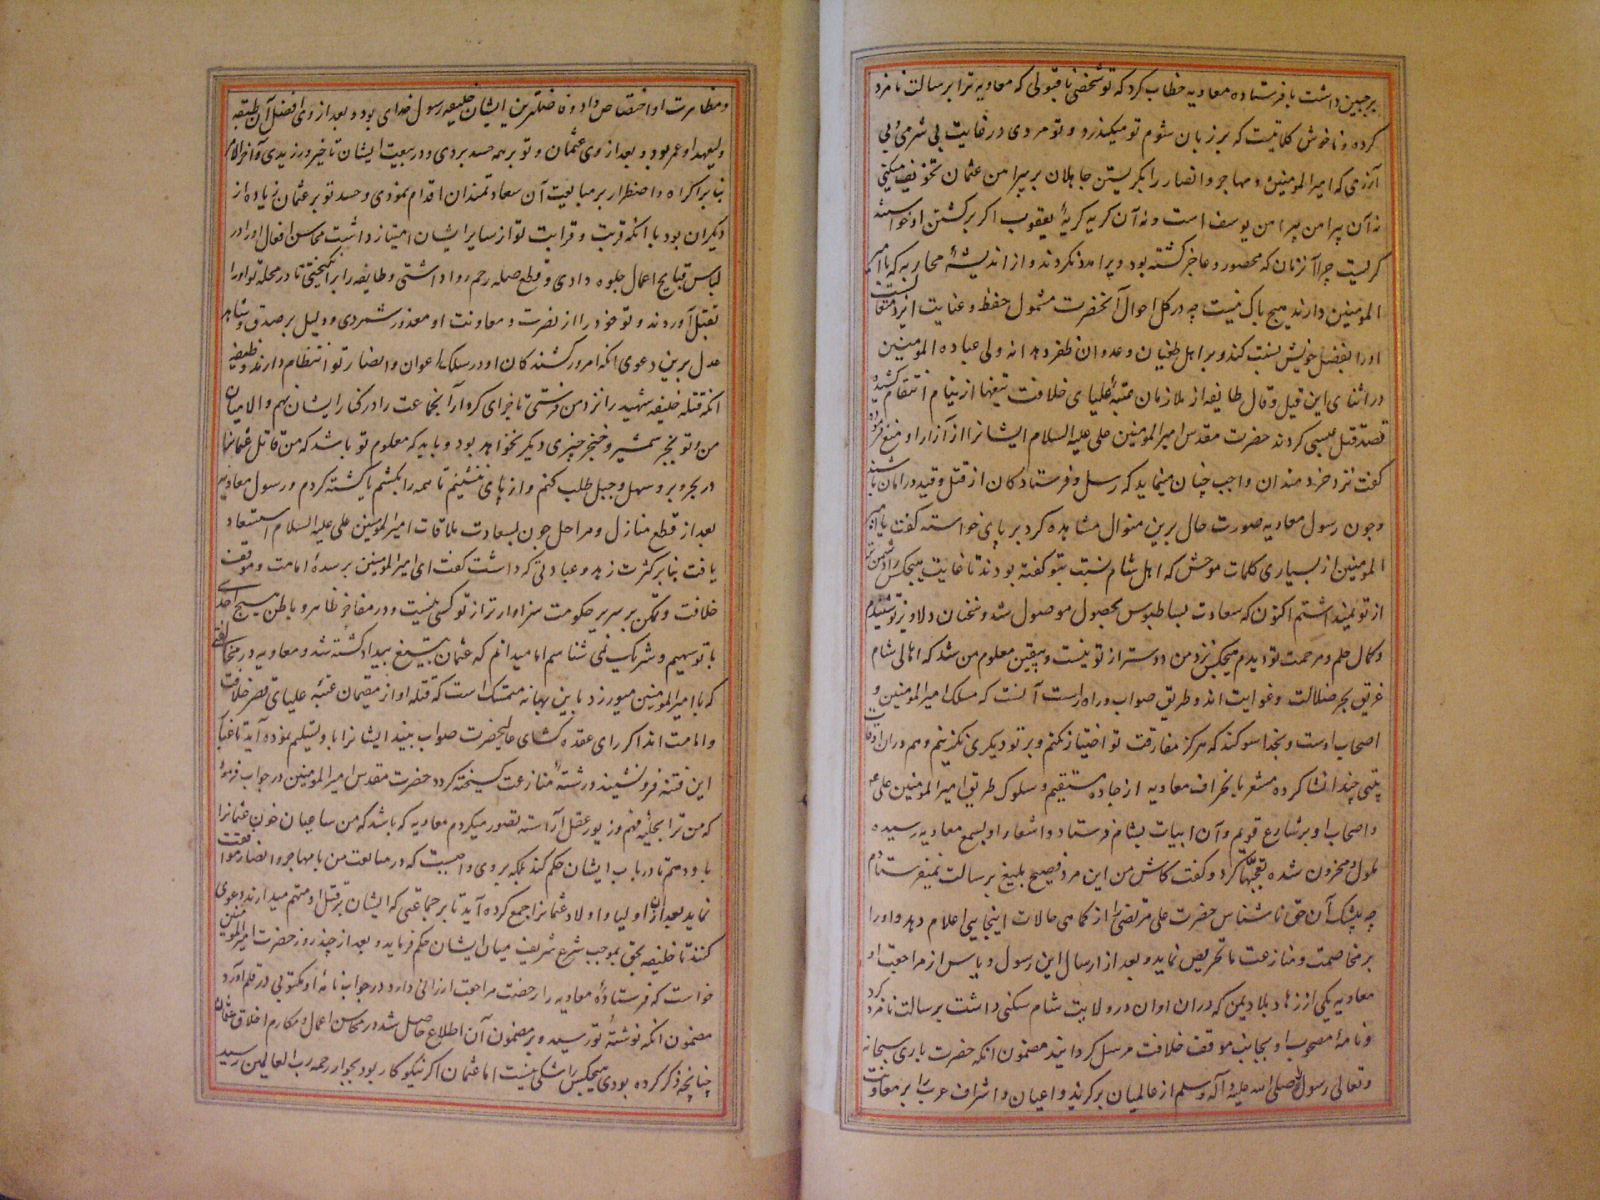 بر جبین داشت با فرستاده معاویه خطاب کرد که تو شخصی نا قبولی که معاویه ترا برسالت نامزد
کرده و ناخوش کلامیست که بر زبان شوم تو میکذرد و تو مردی در غایت بی شرمی و بی
آزرمی که امیرالمومنین و مهاجر و انصار را بکریستن جاهلان بر پیراهن عثمان تخویف میکنی
نه آن پیراهن پیراهن یوسف است و نه آن کریه کریهٔ یعقوب اکر برکشتن او خواستند
کریست چرا آنزمان که محصور و عاجز کشته بود ویرا مدد نکردند و از اندیشهٔ محاربه که با امیر
المومنین دارند هیچ باک نیست چه در کل احوال آنحضرت مشمول حفظ و عنایت ایزد متعالست
او را بفضل خویش نصرت کند و بر اهل طغیان و عدوان ظفر دهد انه ولی عباده المومنین
در اثنای این قیل و قال طایفه از ملازمان عتبهٔ علیای خلافت تیغها از نیام انتقام کشیده
قصد قتل عبسی کردند حضرت مقدس امیرالمومنین علی علیه السلام ایشانرا از آزار او منع فرموده
کفت نزد خردمندان واجب چنان مینماید که رسل و فرستادکان از قتل و قید در امان باشند
و چون رسول معاویه صورت حال برین منوال مشاهده کرد بر پای خواسته کفت یا امیر
المومنین از بسیاری کلمات موحش که اهل شام نسبت بتو کفته بودند تا غایت هیچکس را دشمن تر
از تو نمیداشتم اکنون که سعادت بساط بوس بحصول موصول شد و سخنان دلاویز تو شنیدم
و کمال حلم و مرحمت تو دیدم هیچکس نزد من دوستر از تو نیست و بیقین معلوم من شد که اهالی شام
غریق بحر ضلالت و غوایت اند و طریق صواب و راه راست آنست که مسلک امیرالمومنین و
اصحاب اوست و بخدا سوکند که هرکز مفارقت تو اختیار نکنم و بر تو دیکری نکزینم و هم دران اوقات
بیتی چند انشا کرده مشعر بانحراف معاویه از جاده مستقیم و سلوک طریق امیرالمومنین علی ع
و اصحاب او بر شارع قویم و آن ابیات بشام فرستاد و اشعار او بسمع معاویه رسیده
ملول و محزون شده تعجبها کرد و کفت کاش من این مرد فصیح بلیغ برسالت نمیفرستادم
چه بیشک آن حق ناشناس حضرت علی مرتضی را از کماهی حالات اینجایی اعلام دهد و او را
بر مخاصمت و منازعت ما تحریض نماید و بعد از ارسال این رسول و یاس از مراجعت او
معاویه یکی از زهاد بلاد یمن که دران اوان در ولایت شام سکنی داشت برسالت نامزد کرد
و نامهٔ مصحوب او بجانب موقف خلافت مرسل کردانید مضمون انکه حضرت باری سبحانه
و تعالی رسول الله صلی الله علیه و آله وسلم از عالمیان برکزید و اعیان و اشراف عرب را بر معاونت
و مظاهرت او اختصاص داد و فاضلترین ایشان خلیفه رسول خدای بود و بعد از وی افضل آن طبقه
ولیعهد او عمر بود و بعد از وی عثمان و تو بر همه حسد بردی و در بیعت ایشان تاخیر ورزیدی و آخر الامر
بنابر اکراه و اضطرار بر مبایعت آن سعادتمندان اقدام نمودی و حسد تو بر عثمان زیاده از
دیکران بود با انکه قربت و قرابت تو از سایر ایشان امتیاز داشت محاسن افعال او را در
لباس قبایح اعمال جلوه دادی و قطع صله رحم روا داشتی و طایفه را برانکیختی تا در محله تو او را
بقتل آوردند و تو خود را از نصرت و معاونت او معذور شمردی و دلیل بر صدق و شاهد
عدل برین دعوی انکه امروز کشندکان او در سلک اعوان و انصار تو انتظام دارند وظیفه
انکه قتله خلیفه شهید را نزد من فرستی تا جزای کردار آنجماعت را در کنار ایشان نهم و الا میان
من و تو بجز شمشیر و خنجر چیزی دیکر نخواهد بود و باید که معلوم تو باشد که من قاتل عثمانرا
در بحر و بر و سهل و جبل طلب کنم و از پای ننشینم تا همه را بکشم یا کشته کردم و رسول معاویه
بعد از قطع منازل و مراحل چون بسعادت ملاقات امیرالمومنین علی علیه السلام استسعاد
یافت بنابر کثرت زهد و عبادتی که داشت کفت ای امیرالمومنین بر سدهٔ امامت و موقف
خلافت و تمکن بر سریر حکومت سزاوارتر از تو کسی نیست و در مفاخر ظاهر و باطن هیچ احدی
با تو سهیم و شریک نمی شناسم اما میدانم که عثمان بتیغ بیداد کشته شد و معاویه در مخالفتی
که با امیرالمومنین میورزد باین بهانه متمسک است که قتله او از مقیمان عتبهٔ علیای قصر خلافت
و امامت اند اکر رای عقده کشای عالیحضرت صواب بیند ایشانرا باو تسلیم نموده آید تا غبار
این فتنه فرو نشیند و رشتهٔ منازعت کسیخته کردد حضرت مقدس امیرالمومنین در جواب فرمود
که من ترا بحلیهٔ فهم و زیور عقل آراسته تصور میکردم معاویه که باشد که من صاحبان خون عثمانرا
باو دهم تا در باب ایشان حکم کند بلکه بر وی واجبست که در متابعت من با مهاجر و انصار موافقت
نماید بعد ازان اولیا و اولاد عثمانرا جمع کرده آید تا بر جماعتی که ایشان بر قتل او متهم میدارند دعوی
کنند تا خلیفه بحق بموجب شرع شریف میان ایشان حکم فرماید و بعد از چند روز حضرت امیرالمومنین
خواست که فرستادهٔ معاویه را رخصت مراجعت ارزانی دارد در جواب نامهٔ او مکتوبی در قلم آورد
مضمون انکه نوشتهٔ تو رسید و بر مضمون آن اطلاع حاصل شد در محاسن اعمال و مکارم اخلاق عثمان
چنانچه ذکر کرده بودی هیچکس را شکی نیست اما عثمان اکر نیکوکار بود بجوار رحمه رب العالمین رسید